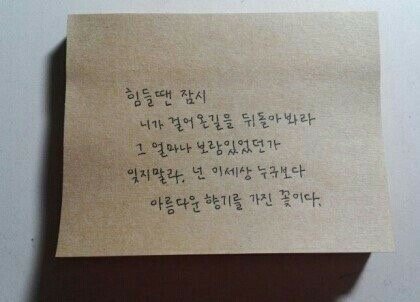 힘들땐 잠시
니가 걸어온길을 뒤돌아봐라
그 얼마나 보람있었던가
잊지말라. 넌 이세상 누구보다
아름다운 향기를 가진 꽃이다.